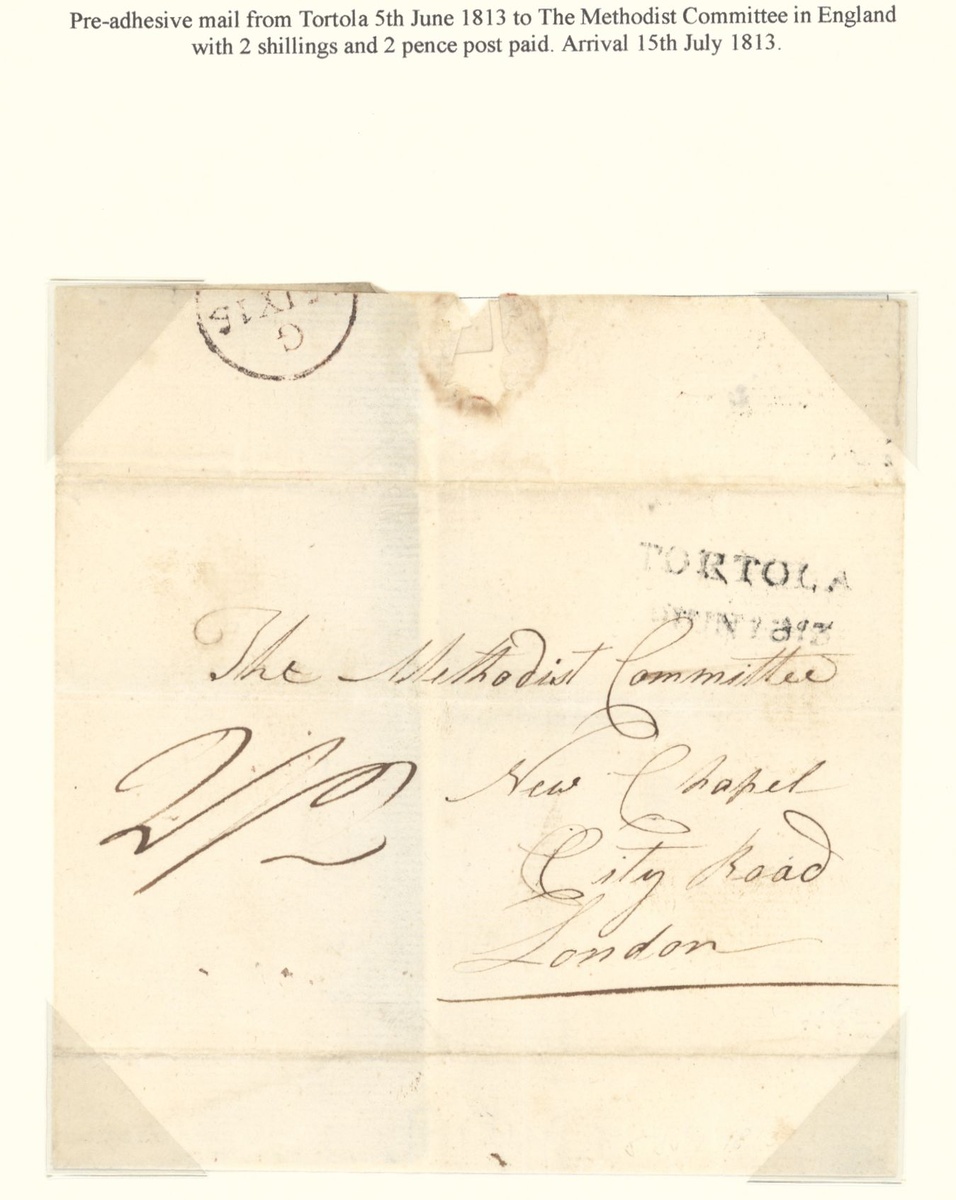 Pre-adhesive mail from Tortola 5th June 1813 to The Methodist Committee in England
with 2 shillings and 2 pence post paid. Arrival 15th July 1813.
G
TORTOLA
The Methodist Committee
2/2
New Chapel
City Road
London